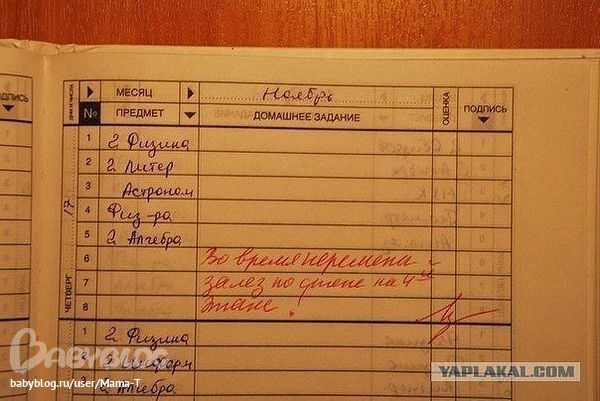 ПОДПИСЬ
ДНИ И ЧИСЛА
МЕСЯЦ Ноябрь
№ ПРЕДМЕТ ДОМАШНЕЕ ЗАДАНИЕ ОЦЕНКА ПОДПИСЬ
ЧЕТВЕРГ 17
1 2 Физика
2 2 Литер
3 Астроном
4 Физ-ра
5 2 Алгебра
6 Во время перемены
7 залез по стене на 4ый
8 этаж.
1 2 Физика
2 2 Информ
3 2 Алгебра
BABYBLOG
babyblog.ru/user/Mama-T
YAPLAKAL.COM